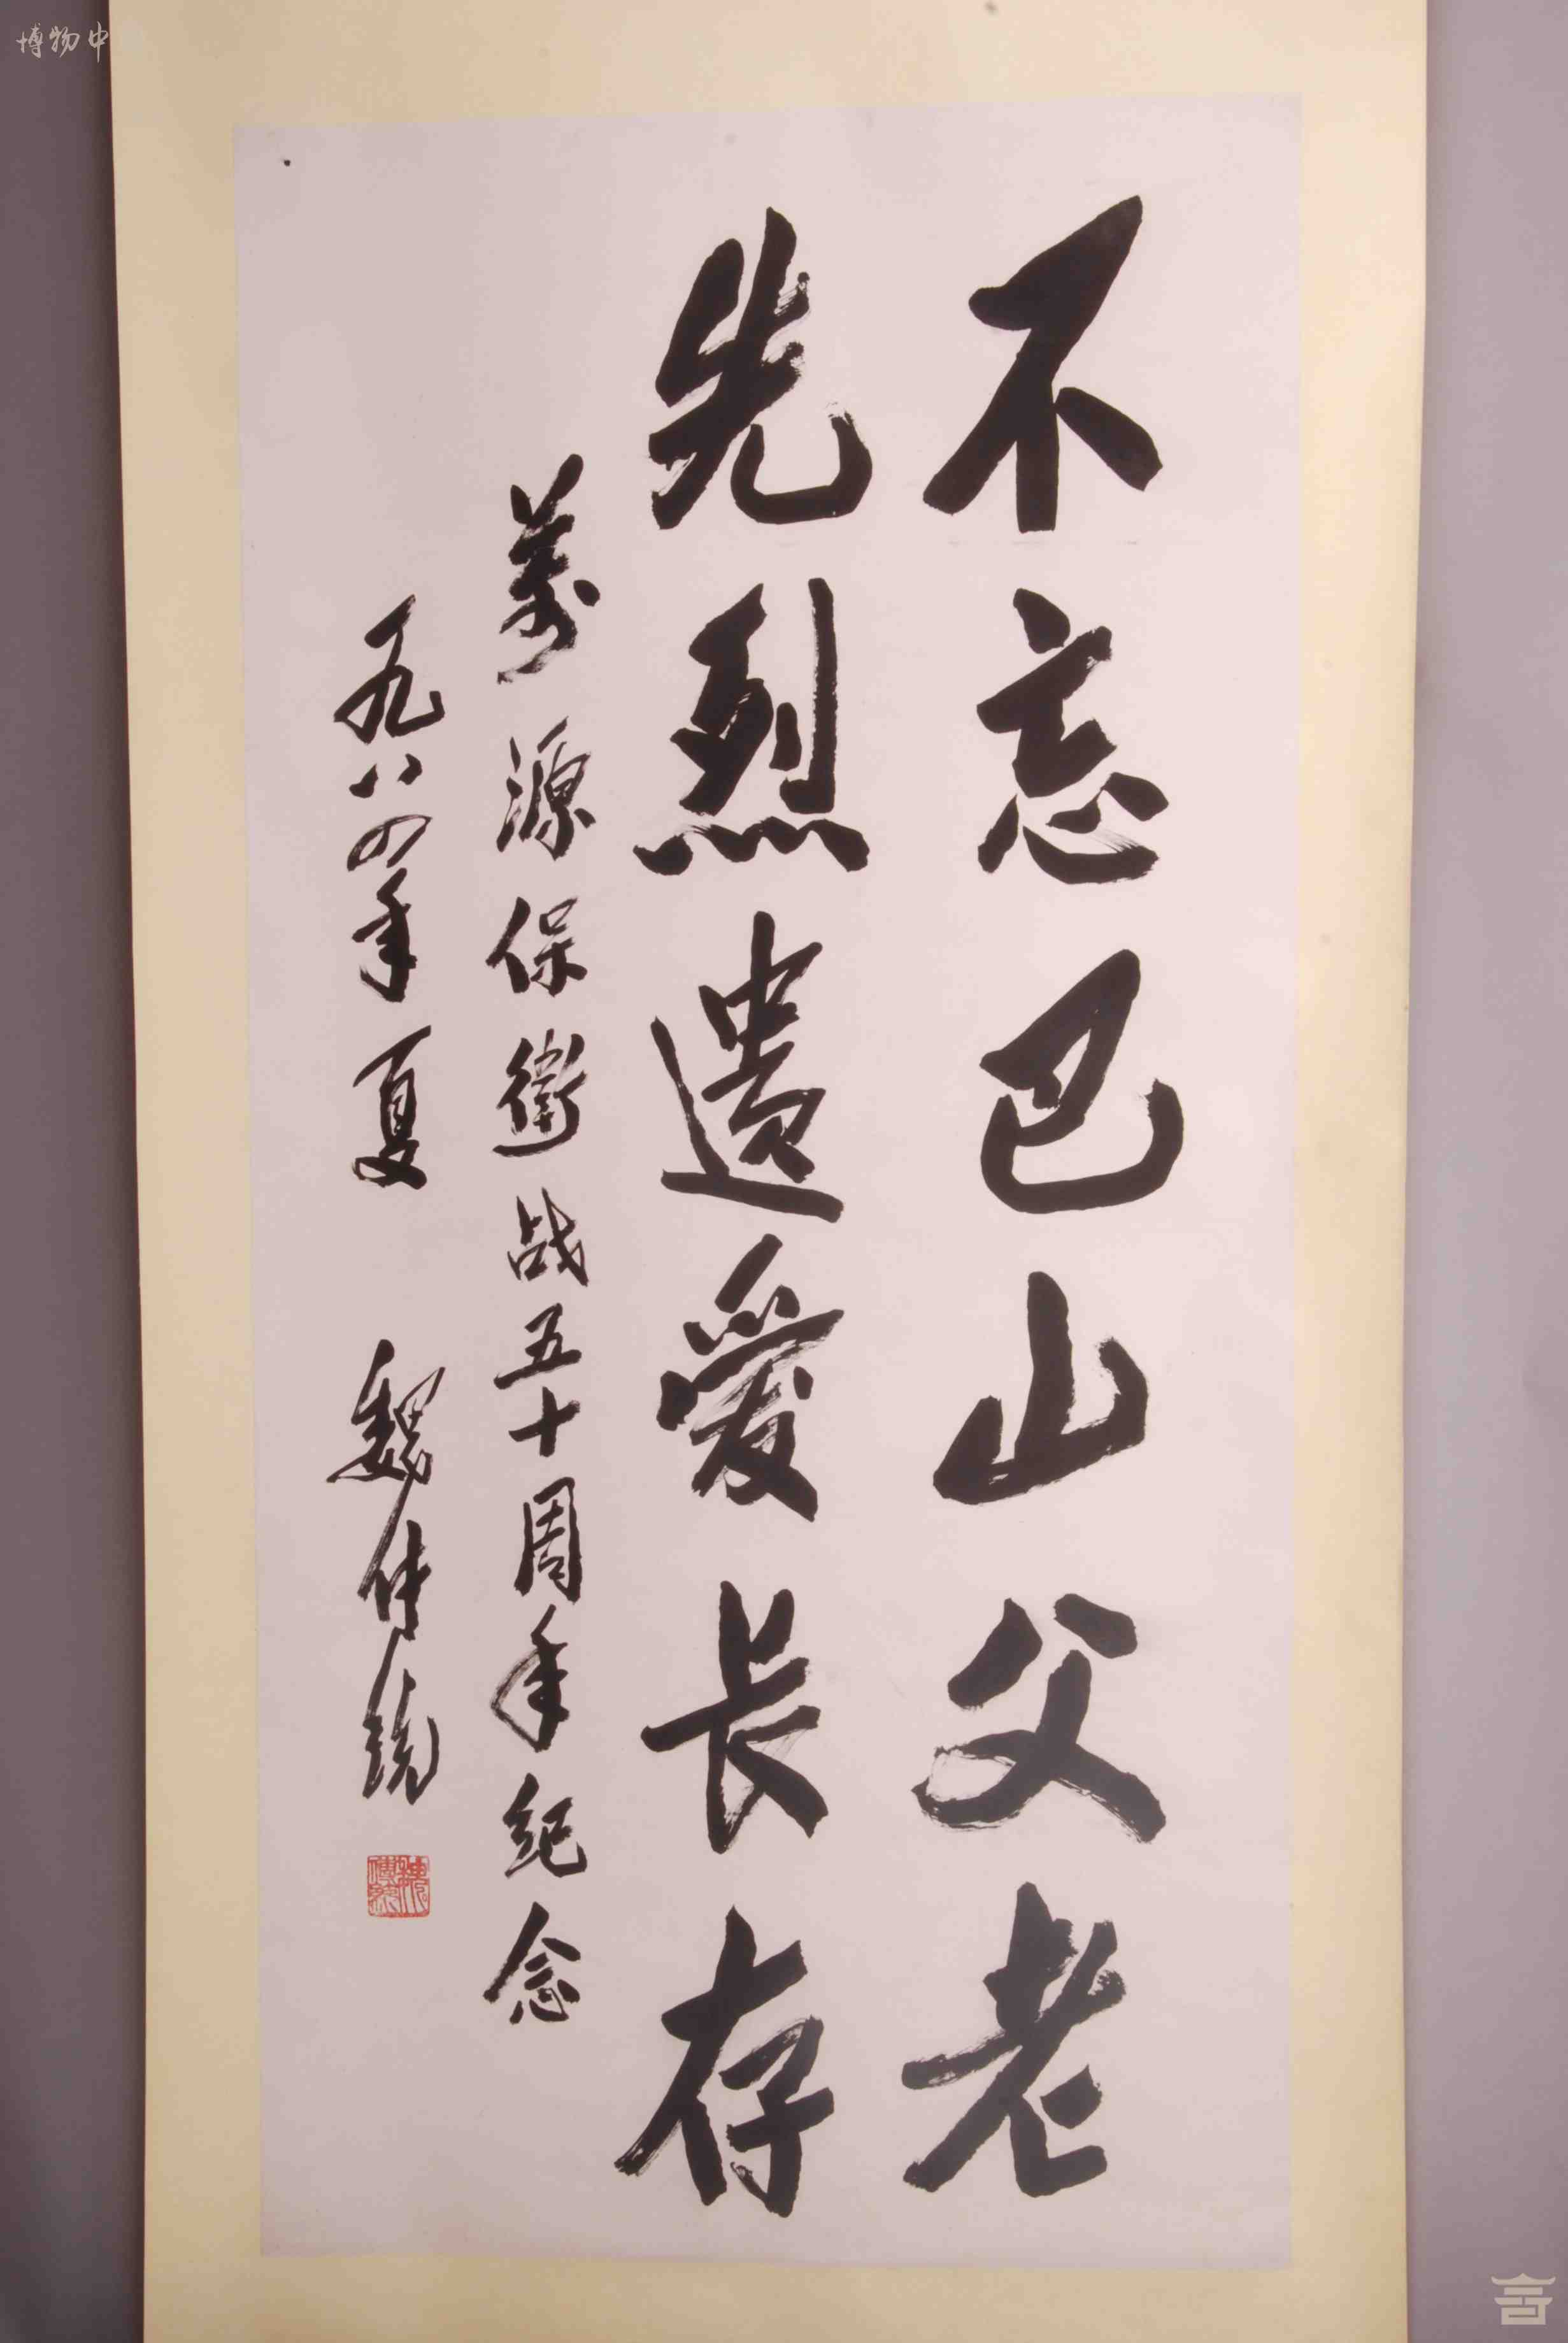 不忘巴山父老
先烈遗爱长存
萬源保衛战五十周年纪念
一九八四年夏 魏传统
博物中